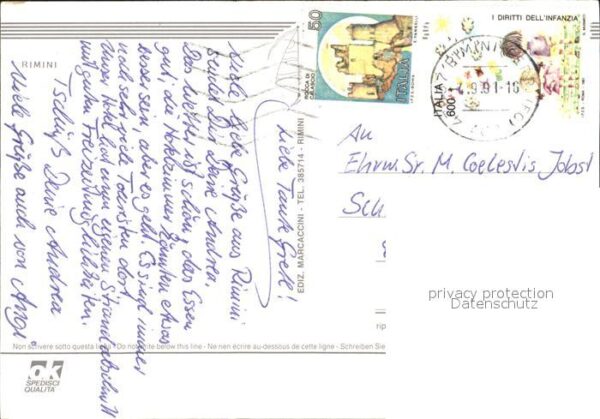 RIMINI
Liebe Tante Gretl!
Viele liebe Grüße aus Rimini
sendet Dir Deine Andrea.
Das Wetter ist schön, das Essen
gut, die Hotelzimmer könnten etwas
besser sein, aber es geht. Es sind immer
noch sehr viele Touristen dort.
Unser Hotel hat einen eigenen Strandabschnitt
mit guten Freizeitmöglichkeiten.
Tschüß Deine Andrea
Viele Grüße auch von
EDIZ. MARCACCINI - TEL. 385714 - RIMINI
50
ROCCA DI CALASCIO
ITALIA
I DIRITTI DELL'INFANZIA
ITALIA 600
RIMINI
9.91-18
An
Ehrw. Sr. M. Coelestis Jobst
privacy protection
Datenschutz
Non scrivere sotto questa linea - Do not write below this line - Ne rien écrire au-dessous de cette ligne - Schreiben Sie
ok
SPEDISCI
QUALITA'